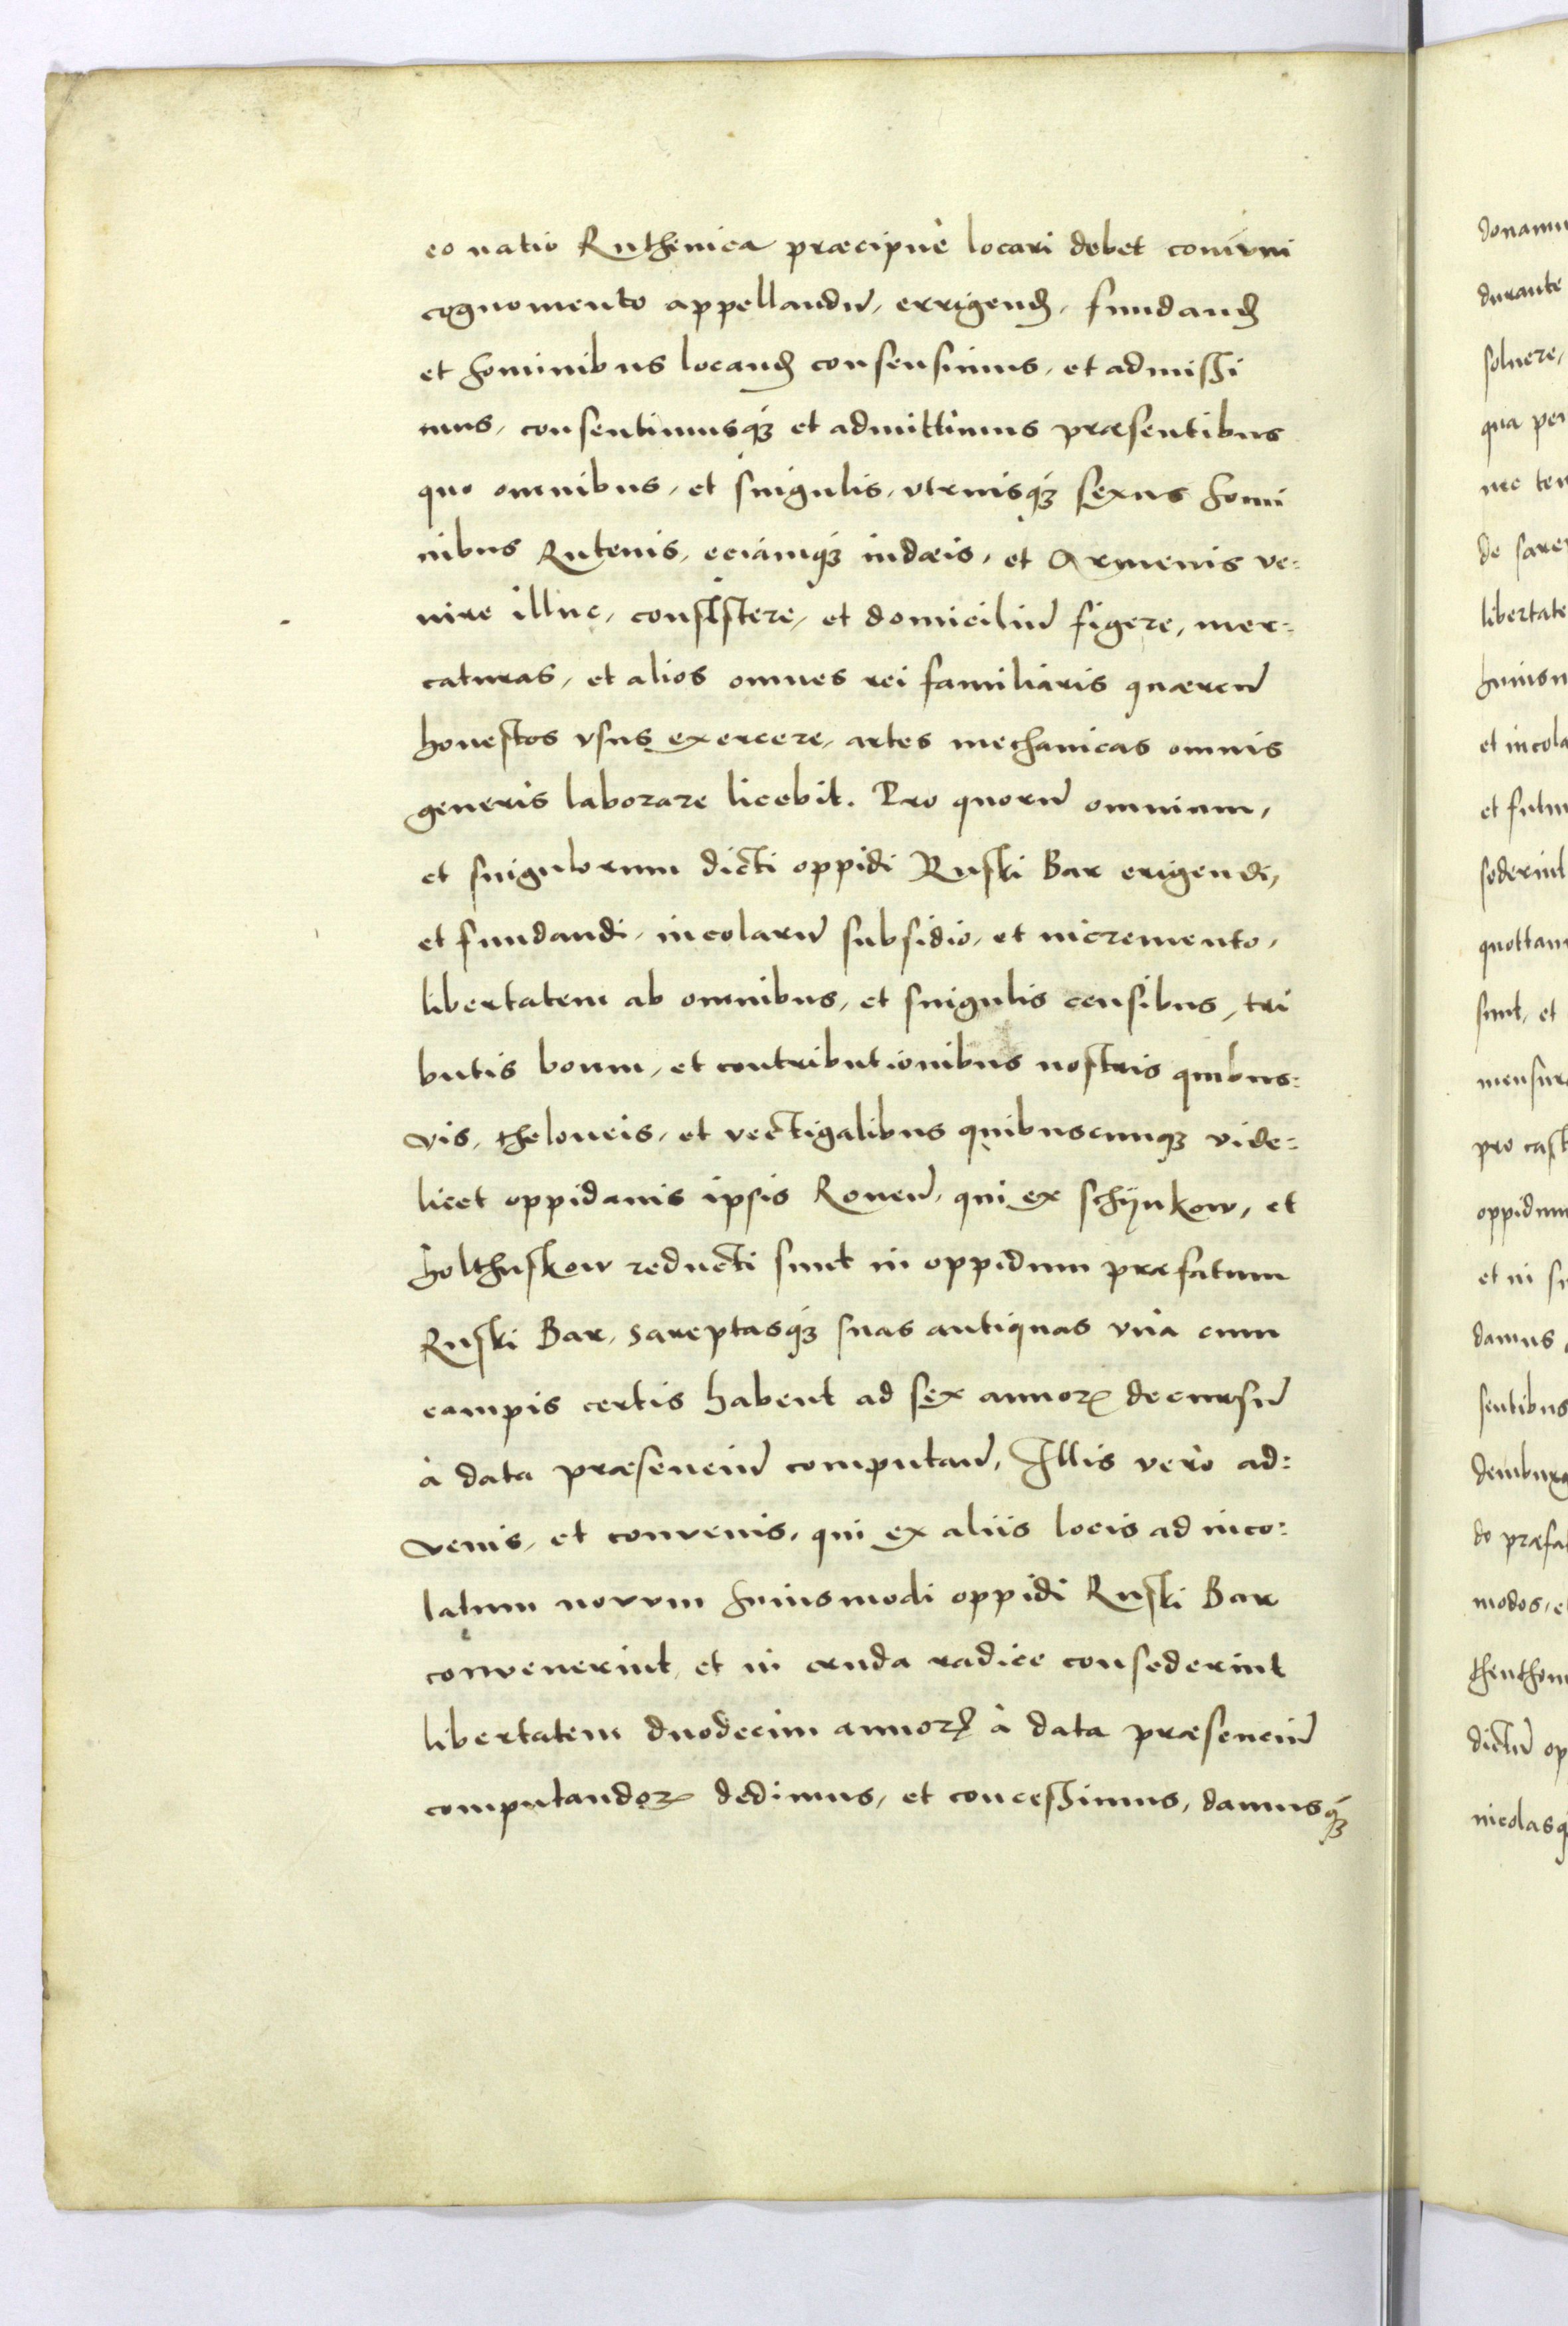 eo natio Ruthenica præcipuè locari debet comuni
cognomento appellandũ, errigend, fundand
et hominibus locand consensimus, et admissi
mus, consentimusq́ꝫ et admittimus præsentibus
quo omnibus, et singulis, vtriusq́ꝫ sexus homi
nibus Rutenis, eciamq́ꝫ iudæis, et Armenis ve:
nire illuc, consistere, et domiciliũ figere, mer:
caturas, et alios omnes rei familiaris quærend̃
honestos vsus exercere, artes mechanicas omnis
generis laborare licebit. Pro quorũ omnium,
et singulorum dicti oppidi Ruski Bar erigendi,
et fundandi, incolarũ subsidio, et incremento,
libertatem ab omnibus, et singulis censibus, tri
butis boum, et contributionibus nostris quibus:
vis, theloneis, et vectigalibus quibuscumqꝫ vide:
licet oppidanis ipsis Rouen̄, qui ex schÿnkow, et
holthuskow reducti sunt in oppidum præfatum
Ruski Bar, sareptasq́ꝫ suas antiquas vnà cum
campis certis habent ad sex annoꝝ decursũ
à data præsenciũ computan̄, Illis verò ad:
venis, et convenis, qui ex aliis locis ad inco:
latum novum huiusmodi oppidi Ruski Bar
convenerint, et in cruda radice consederint
libertatem duodecim annoꝝ à data præsenciũ
computandoꝝ dedimus, et concessimus, damusq́ꝫ
donamu
durante
soluere,
qua per
de sare
libertate
huiusm
et incola
et futu
sederint
quottan
sunt, et
mensur
pro cast
oppidum
et in
damus
sentibus
demburg
do præfa
modos, e
dictũ op
incolasq